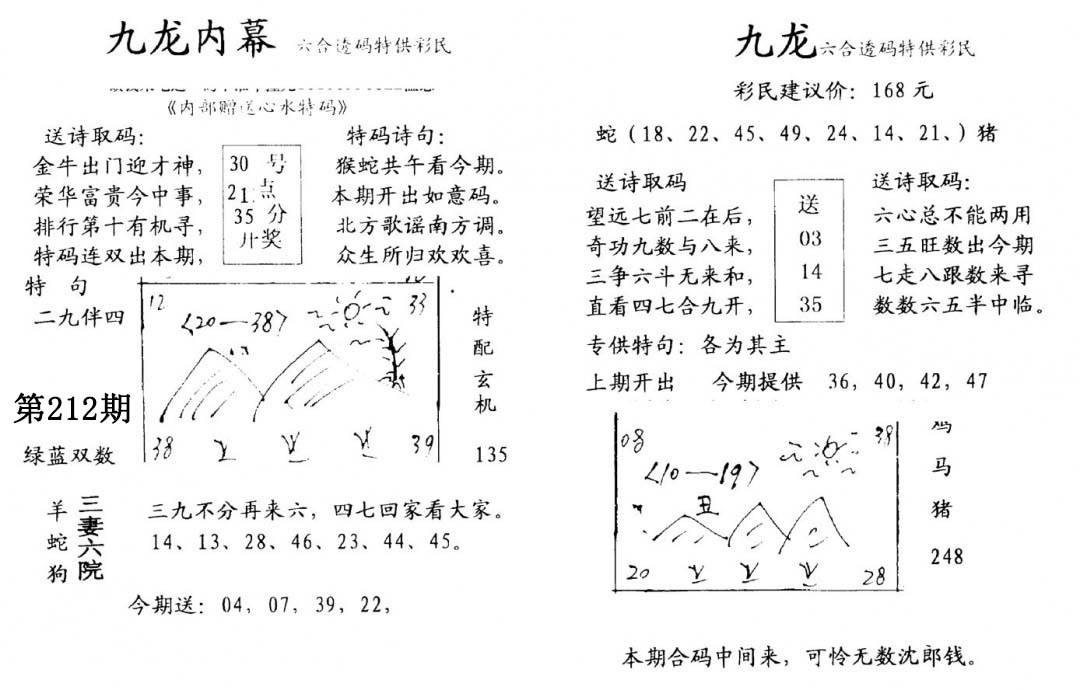 九龙内幕 六合透码特供彩民
《内部赠送心水特码》
送诗取码：
金牛出门迎才神，
荣华富贵今中事，
排行第十有机寻，
特码连双出本期，
30 号
21 点
35 分
开奖
特码诗句：
猴蛇共午看今期。
本期开出如意码。
北方歌谣南方调。
众生所归欢欢喜。
特 句
二九伴四
第212期
绿蓝双数
12
33
〈20—38〉
38
39
特
配
玄
机
135
羊
蛇
狗
三
妻
六
院
三九不分再来六，四七回家看大家。
14、13、28、46、23、44、45。
今期送：04，07，39，22，
九龙六合透码特供彩民
彩民建议价：168元
蛇（18、22、45、49、24、14、21、）猪
送诗取码
望远七前二在后，
奇功九数与八来，
三争六斗无来和，
直看四七合九开，
送
03
14
35
送诗取码：
六心总不能两用
三五旺数出今期
七走八跟数来寻
数数六五半中临。
专供特句：各为其主
上期开出 今期提供 36，40，42，47
08
38
〈10—19〉
丑
20
28
鸡
马
猪
248
本期合码中间来，可怜无数沈郎钱。